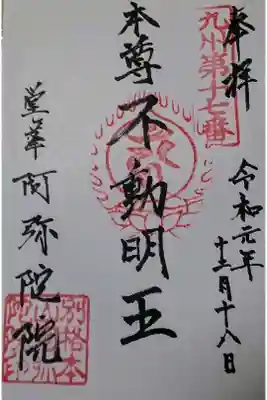 奉拝
九州第十七番
令和元年
十二月十八日
本尊
不動明王
堂ヶ峯
阿弥陀院